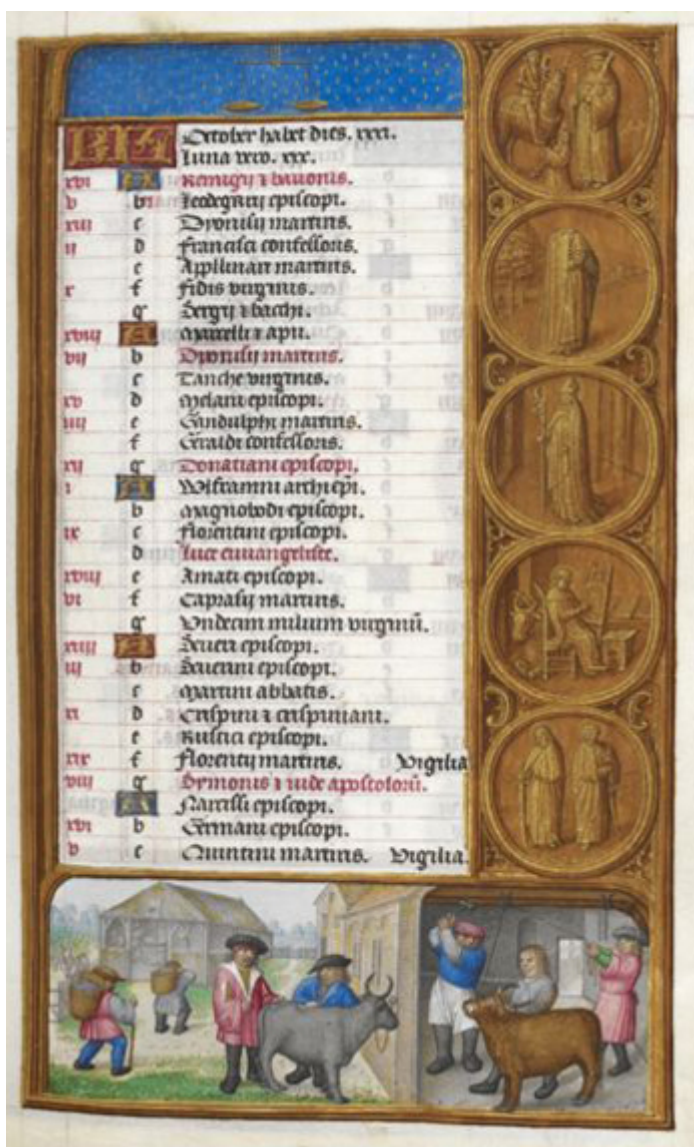 KL October habet dies. xxxi.
Luna vero. xxx.
xvi A Remigij ⁊ bavonis.
v b Leodegarij episcopi.
xiii c Dyonisij martiris.
ii d francisci confessoris.
e Appllinari martiris.
x f fidis virginis.
g Sergij ⁊ bachi.
xviii A Marcelli ⁊ apu.
vii b Dyonisij martiris.
c Tanche virginis.
xv d Melani episcopi.
iiii e Gandulphi martiris.
f Geraldi confessoris.
xii g Donatiani episcopi.
i A Wlframni archiepi.
b Magnobodi episcopi.
ix c florentini episcopi.
d Luce euuangeliste.
xvii e Amati episcopi.
vi f Caprasij martiris.
g Undecim milium virginū.
xiiii A Severi episcopi.
iii b Severini episcopi.
c Martini abbatis.
xi d Crispini ⁊ crispiniani.
e Rustici episcopi.
xix f florentij martiris. Vigilia
viii g Symonis ⁊ iude apostolorū.
A Narcissi episcopi.
xvi b Germani episcopi.
v c Quintini martiris. Vigilia.